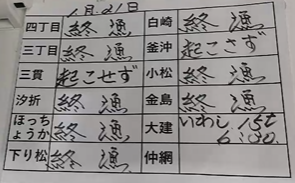 1月21日
四丁目 終漁 白崎 終漁
三丁目 終漁 釜沖 起こさず
三貫 起こせず 小松 終漁
汐折 終漁 金島 終漁
ほっちょうか 終漁 大建 いわし 15t 6:30.
下り松 終漁 仲網